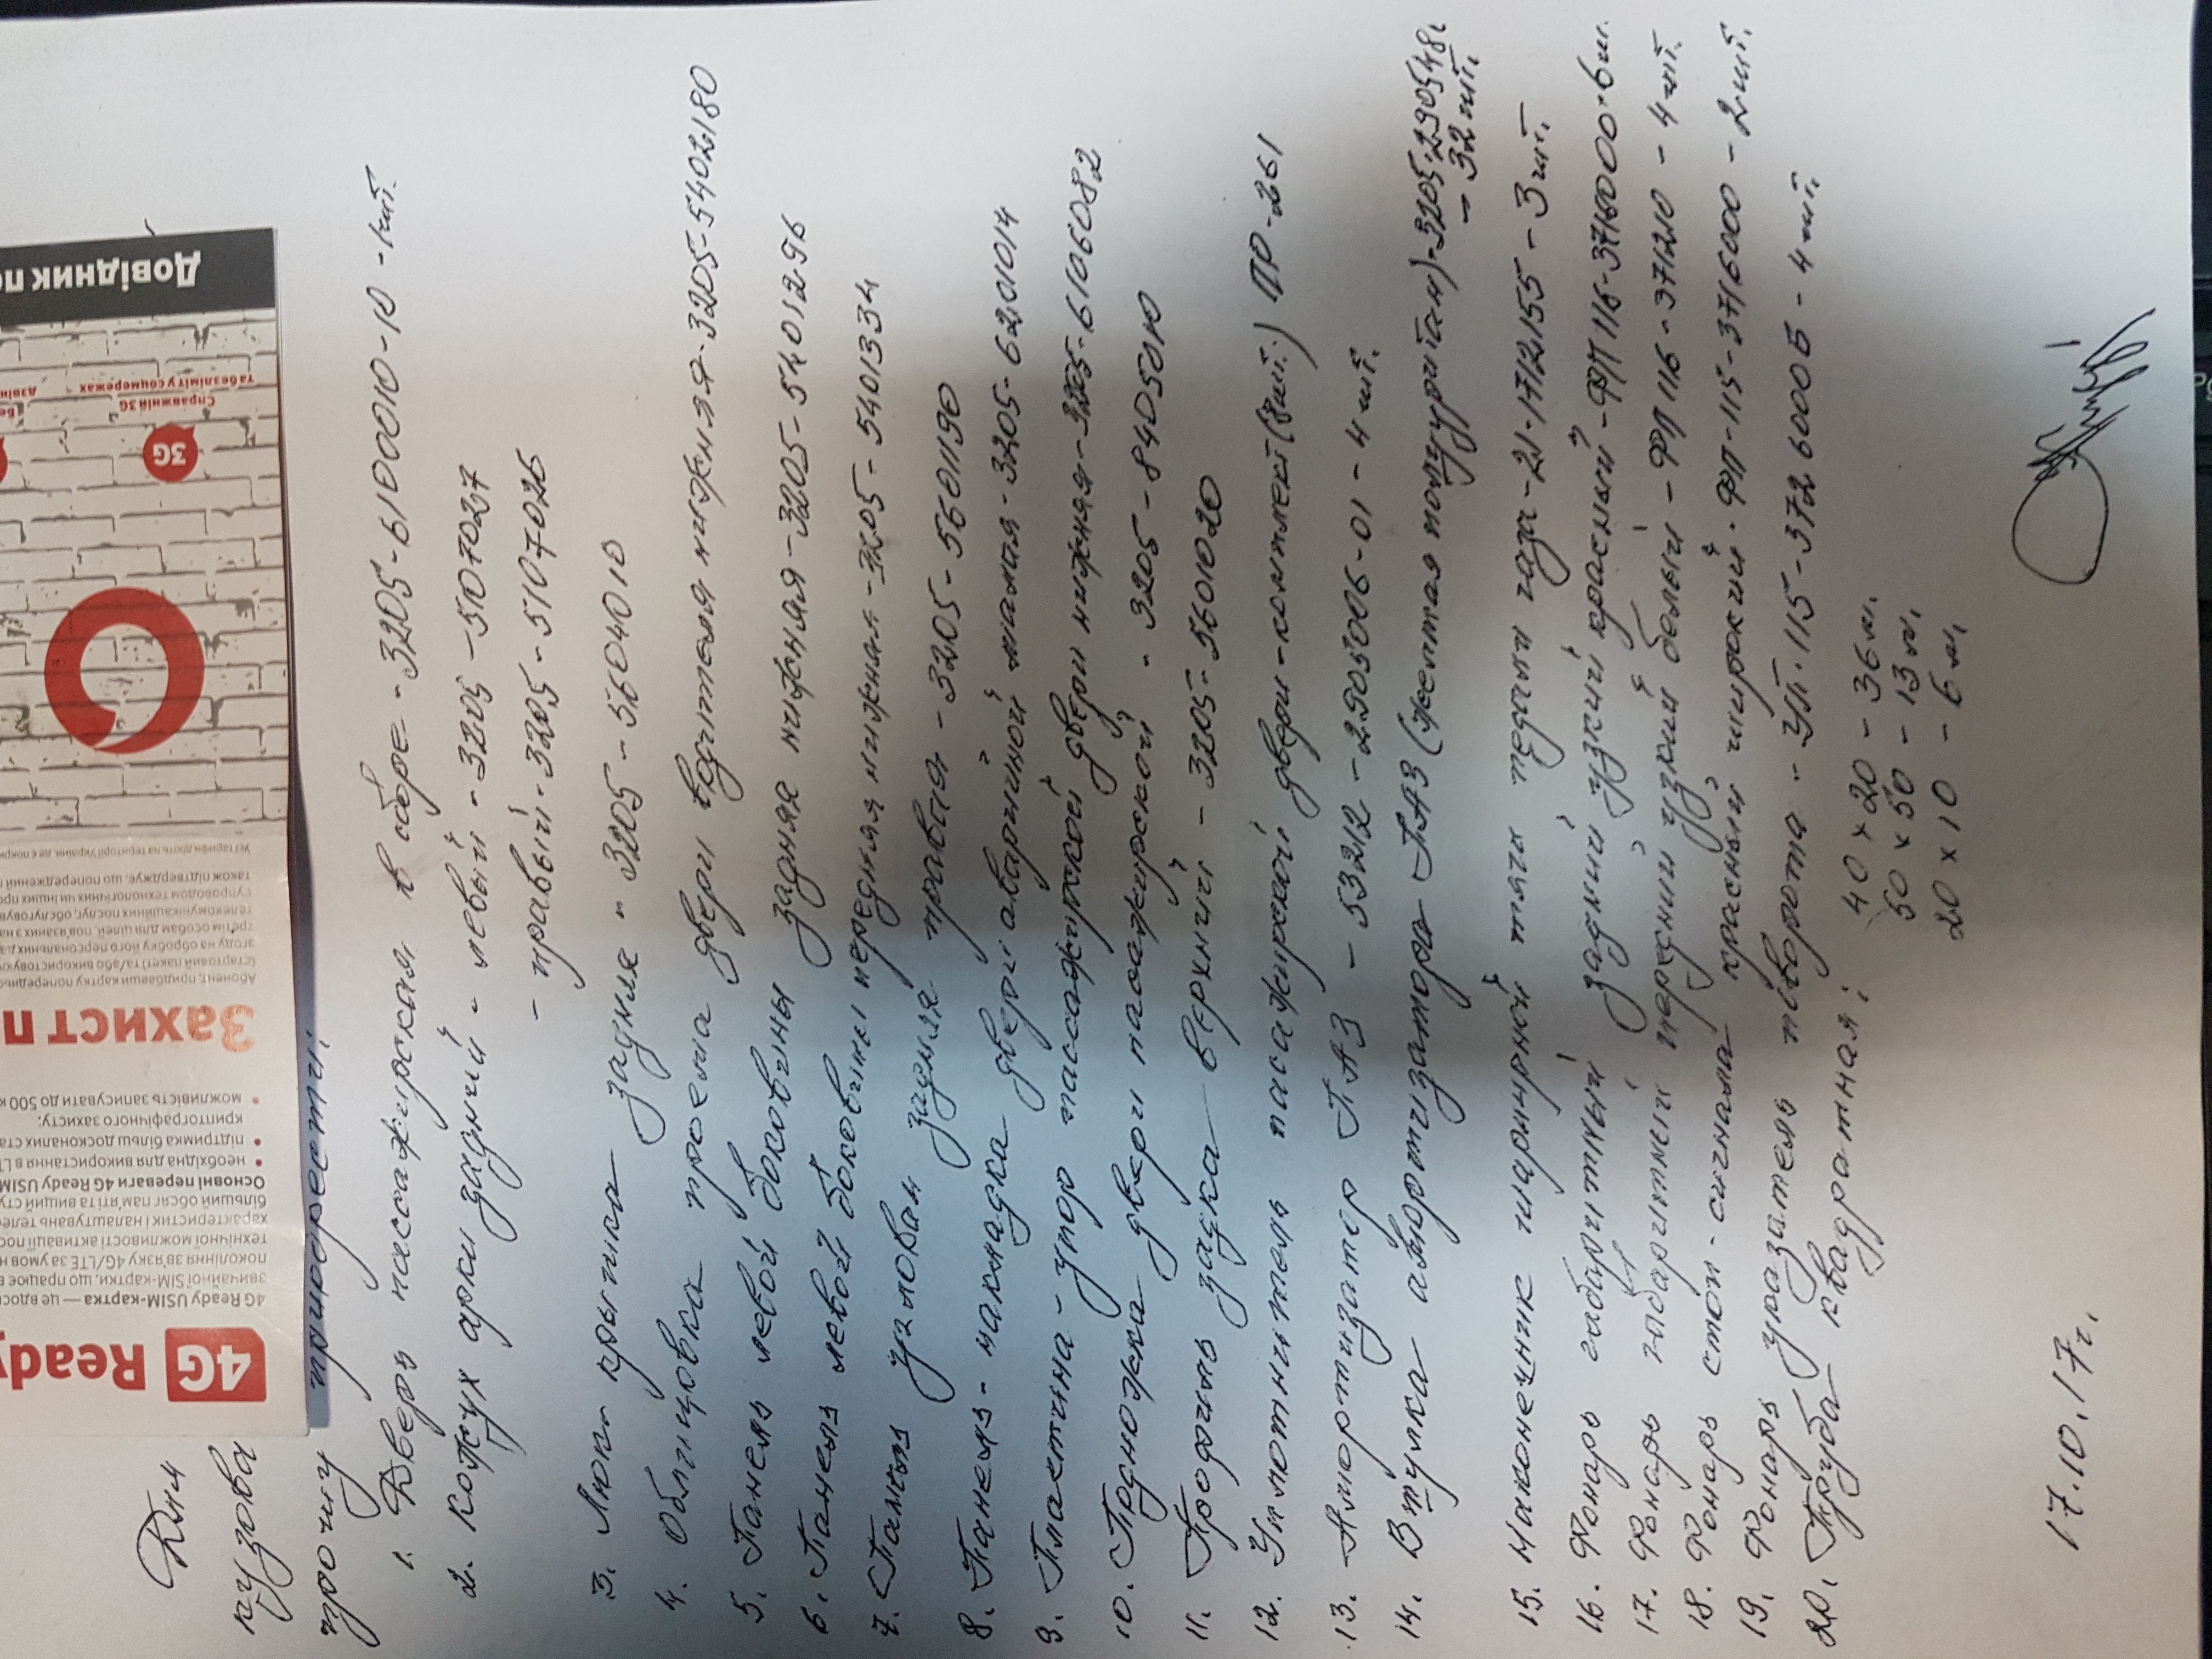 Для
кузова
прошу приобрести:
1. Дверь пассажирская в сборе - 3205-6100010-10 -1шт.
2. Кожух арки задний - левый - 3205 - 5107027
- правый - 3205 - 5107026
3. Люка крышка задняя - 3205 - 5604010
4. Облицовка проема двери водителя нижняя - 3205-5402180
5. Панель левой боковины задняя нижняя - 3205 - 5401296
6. Панель левой боковины передняя нижняя - 3205 - 5401334
7. Панель угловая задняя правая - 3205 - 5601190
8. Панель - накладка двери аварийной малая - 3205 - 6201014
9. Пластина - упор пассажирской двери нижняя - 3205 - 6106082
10. Подножка двери пассажирской - 3205 - 8405010
11. Профиль задка верхний - 3205 - 5601020
12. Уплотнитель пассажирской двери - комплект (8шт.) ПР-261
13. Амортизатор ПАЗ - 53212 - 2905006-01 - 4 шт.
14. Втулка амортизатора ПАЗ (желтая полиуретан) - 3205-2905481
- 32 шт.
15. Наконечник шарнирный тяги педали газа - 21-1712155 - 3 шт.
16. Фонарь габаритный задний узкий красный - ФП 116-3716000-6 шт.
17. Фонарь габаритный передний узкий белый - ФП 116 - 371210 - 4 шт.
18. Фонарь стоп - сигнала красный широкий - ФП - 115 - 3716000 - 2 шт.
19. Фонарь указатель поворота - УП. 115 - 3726000Б - 4 шт.
20. Труба квадратная: 40 × 20 - 36 м.
50 × 50 - 13 м.
20 × 10 - 6 м.
17.10.17г.
4G Ready
4G Ready USIM-картка — це вдоск
звичайної SIM-картки, що працює в
покоління зв'язку 4G/LTE за умов н
технічної можливості активації пос
характеристик і налаштувань теле
більший обсяг пам'яті та вищий сту
Основні переваги 4G Ready USI
• необхідна для використання в L
• підтримка більш досконалих ста
криптографічного захисту;
• можливість записувати до 500 к
Захист п
Абонент, придбавши картку попередньо
(стартовий пакет) та/або використовую
згоду на обробку його персональних да
третім особам для цілей, пов'язаних з на
телекомунікаційних послуг, обслуговув
супроводом технологічних чи інших про
також підтверджує, що попереджений
Усі тарифи діють на території України, де є покри
3G
Справжній 3G
та безліміт у соцмережах
Бе
дзвінк
Довідник по